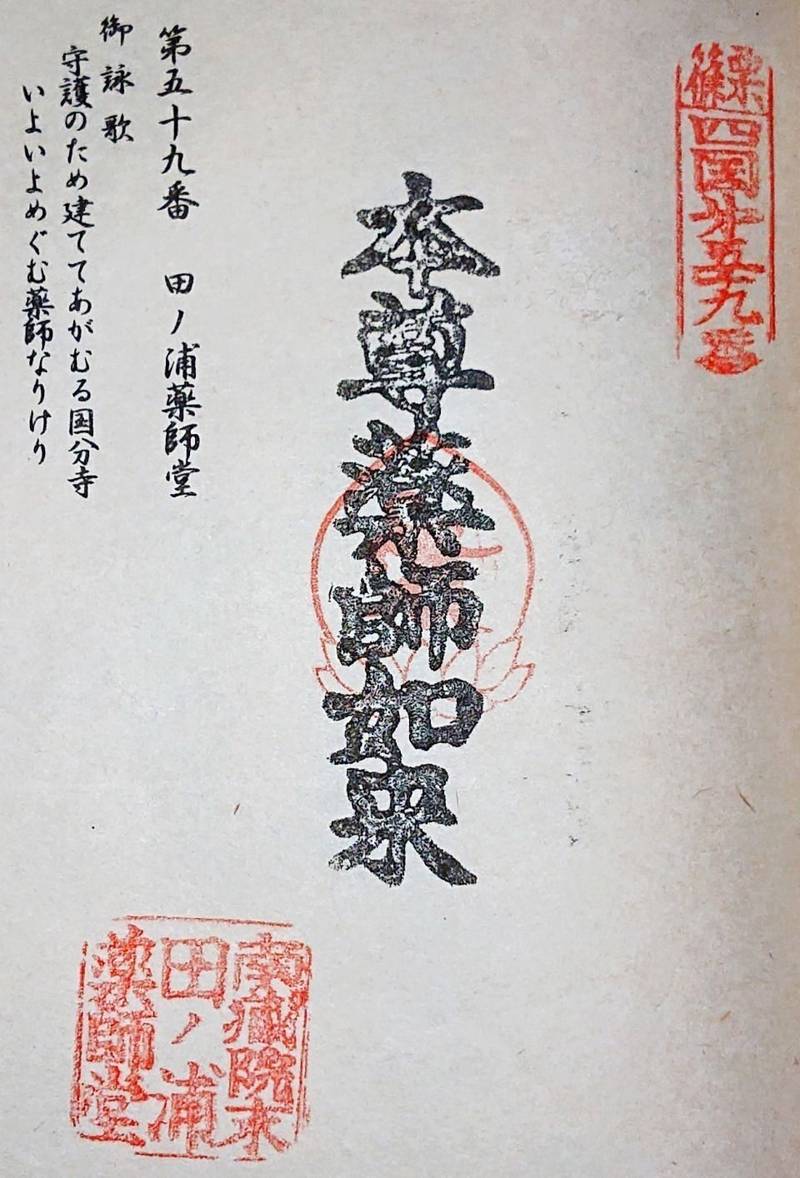 篠栗四国第五十九番
本尊薬師如来
第五十九番 田ノ浦薬師堂
御詠歌
守護のため建ててあがむる国分寺
いよいよめぐむ薬師なりけり
南蔵院末
田ノ浦
薬師堂